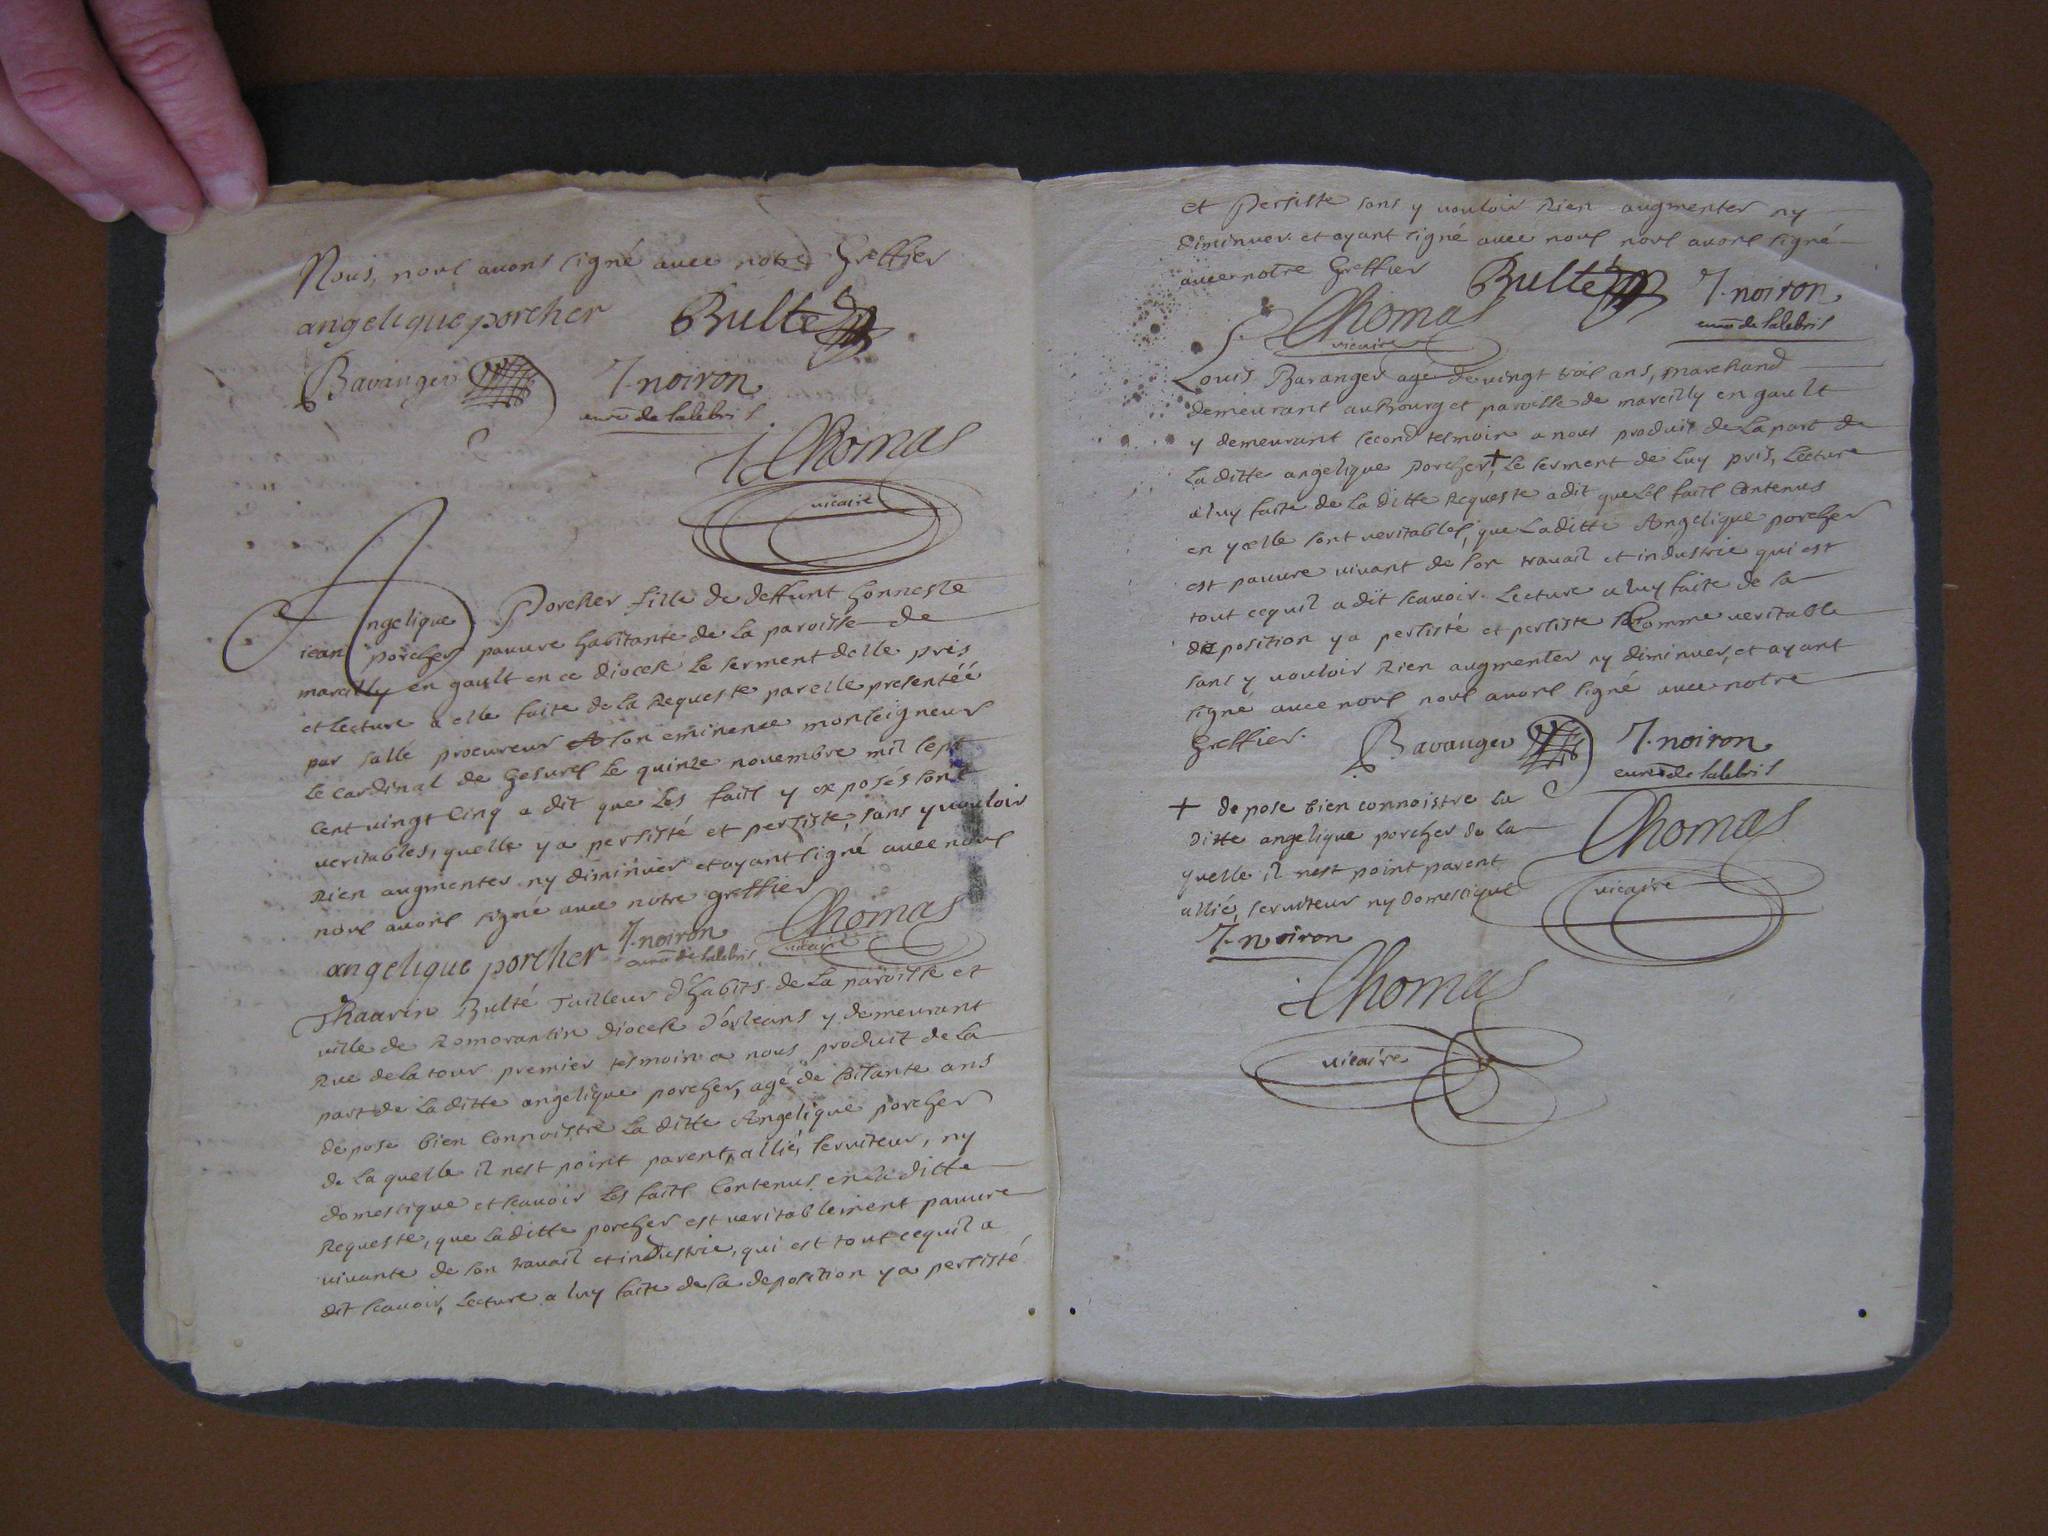 Nous, nous avons signé avec notre Greffier
angelique porcher Bulté
Baranger J. noiron
curé de salebris
Thomas
vicaire
Angelique Porcher fille de deffunt honneste
iean porcher pauvre habitante de La paroisse de
marcilly en gault en ce diocese Le serment delle pris
et Lecture a elle faite de la Requeste par elle presentéé
par sallé procureur A son eminence monseigneur
Le cardinal de Gesures Le quinze novembre mil sept
Cent vingt Cinq a dit que Les faits y exposés sont
veritables, quelle y a persisté et persiste, sans y vouloir
Rien augmenter ny diminuer et ayant signé avec nous
nous avons signé avec notre greffier
angelique porcher J. noiron Thomas
curé de salebris vicaire
Bulté Tailleur d'habits de La paroisse et
ville de Romorantin diocese d'orleans y demeurant
Rue de la tour premier tesmoin a nous produit de La
part de La ditte angelique porcher, agé de soitante ans
depose bien Connoistre La ditte Angelique porcher
de La quelle il nest point parent, allié, serviteur, ny
domestique et scavoir Les faits Contenus en La ditte
Requeste, que La ditte porcher est veritablement pauvre
vivante de son travail et industrie, qui est tout ce quil a
dit scavoir, Lecture a luy faite de sa deposition y a persisté
et Persiste sans y vouloir Rien augmenter ny
diminuer et ayant signé avec nous nous avons signé
avec notre Greffier Bulté J. noiron
curé de salebris
Thomas
vicaire
Louis Baranger agé de vingt trois ans, marchand
demeurant au Bourg et paroisse de marcilly en gault
y demeurant second tesmoin a nous produit de La part de
La ditte angelique porcher + Le serment de Luy pris, Lecture
a luy faite de La ditte Requeste a dit que Les faits Contenus
en ycelle sont veritables, que La ditte Angelique porcher
est pauvre vivant de son travail et industrie qui est
tout ce quil a dit scavoir. Lecture a luy faite de sa
deposition y a persisté et persiste Comme veritable
sans y vouloir Rien augmenter ny diminuer, et ayant
signé avec nous nous avons signé avec notre
Greffier. Baranger J. noiron
curé de salebris
+ depose bien connoistre La
ditte angelique porcher de La
quelle il nest point parent
allié, serviteur ny domestique
Thomas
vicaire
J. noiron
Thomas
vicaire